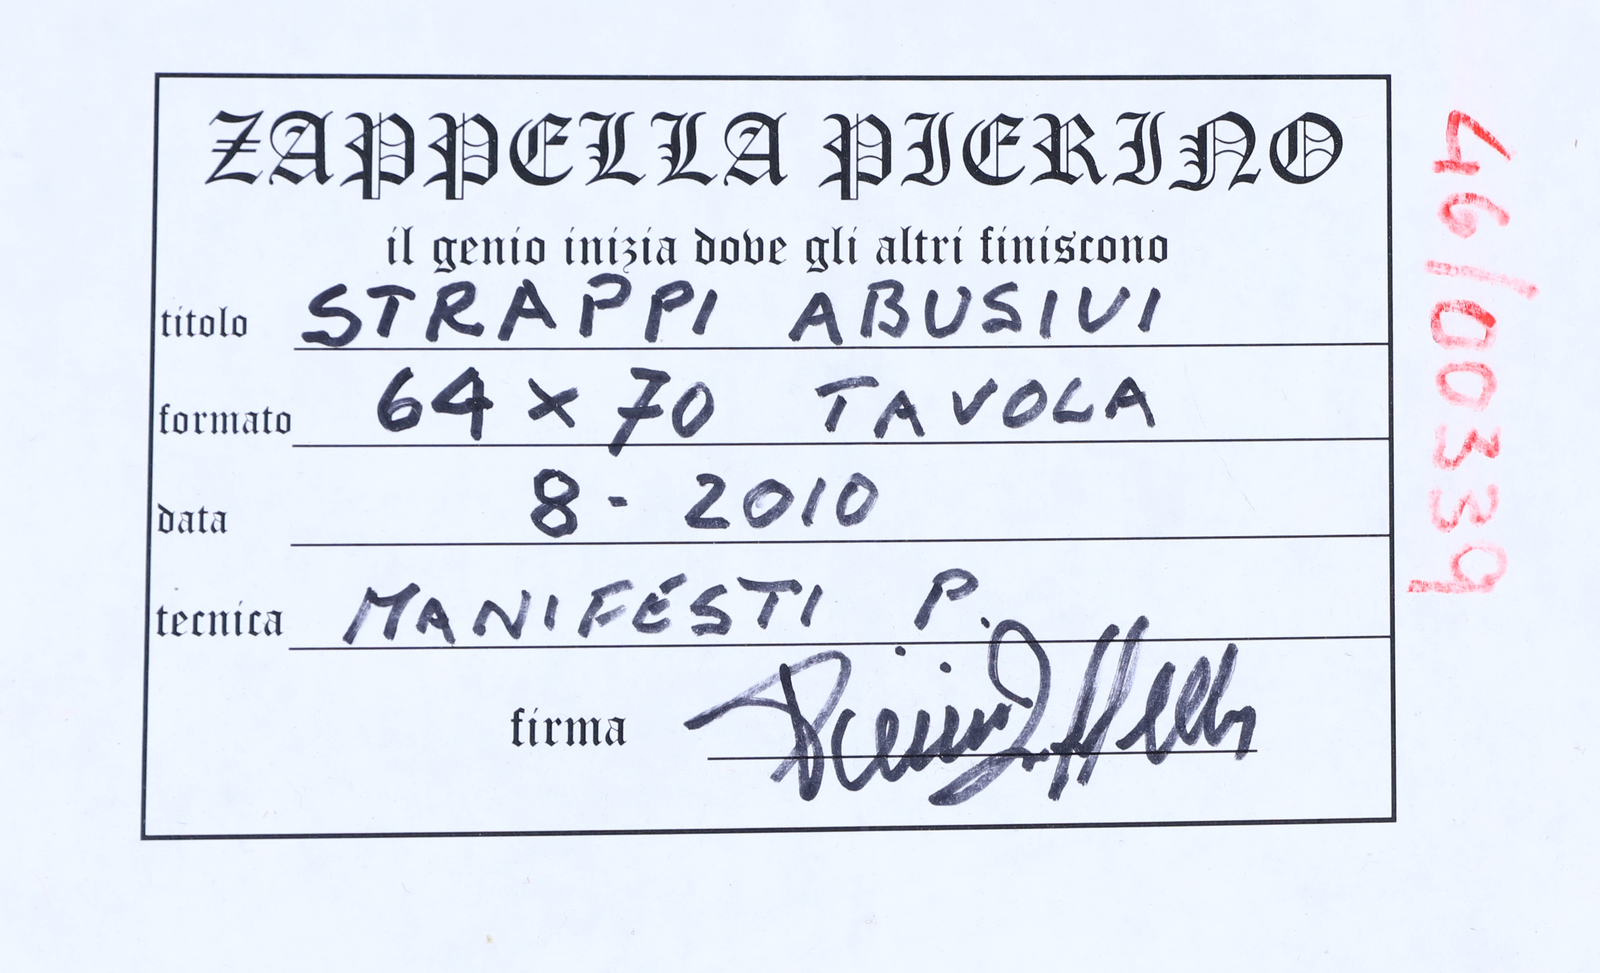 ZAPPELLA PIERINO
il genio inizia dove gli altri finiscono
titolo STRAPPI ABUSIVI
formato 64 x 70 TAVOLA
data 8 - 2010
tecnica MANIFESTI P.
firma
46/00339